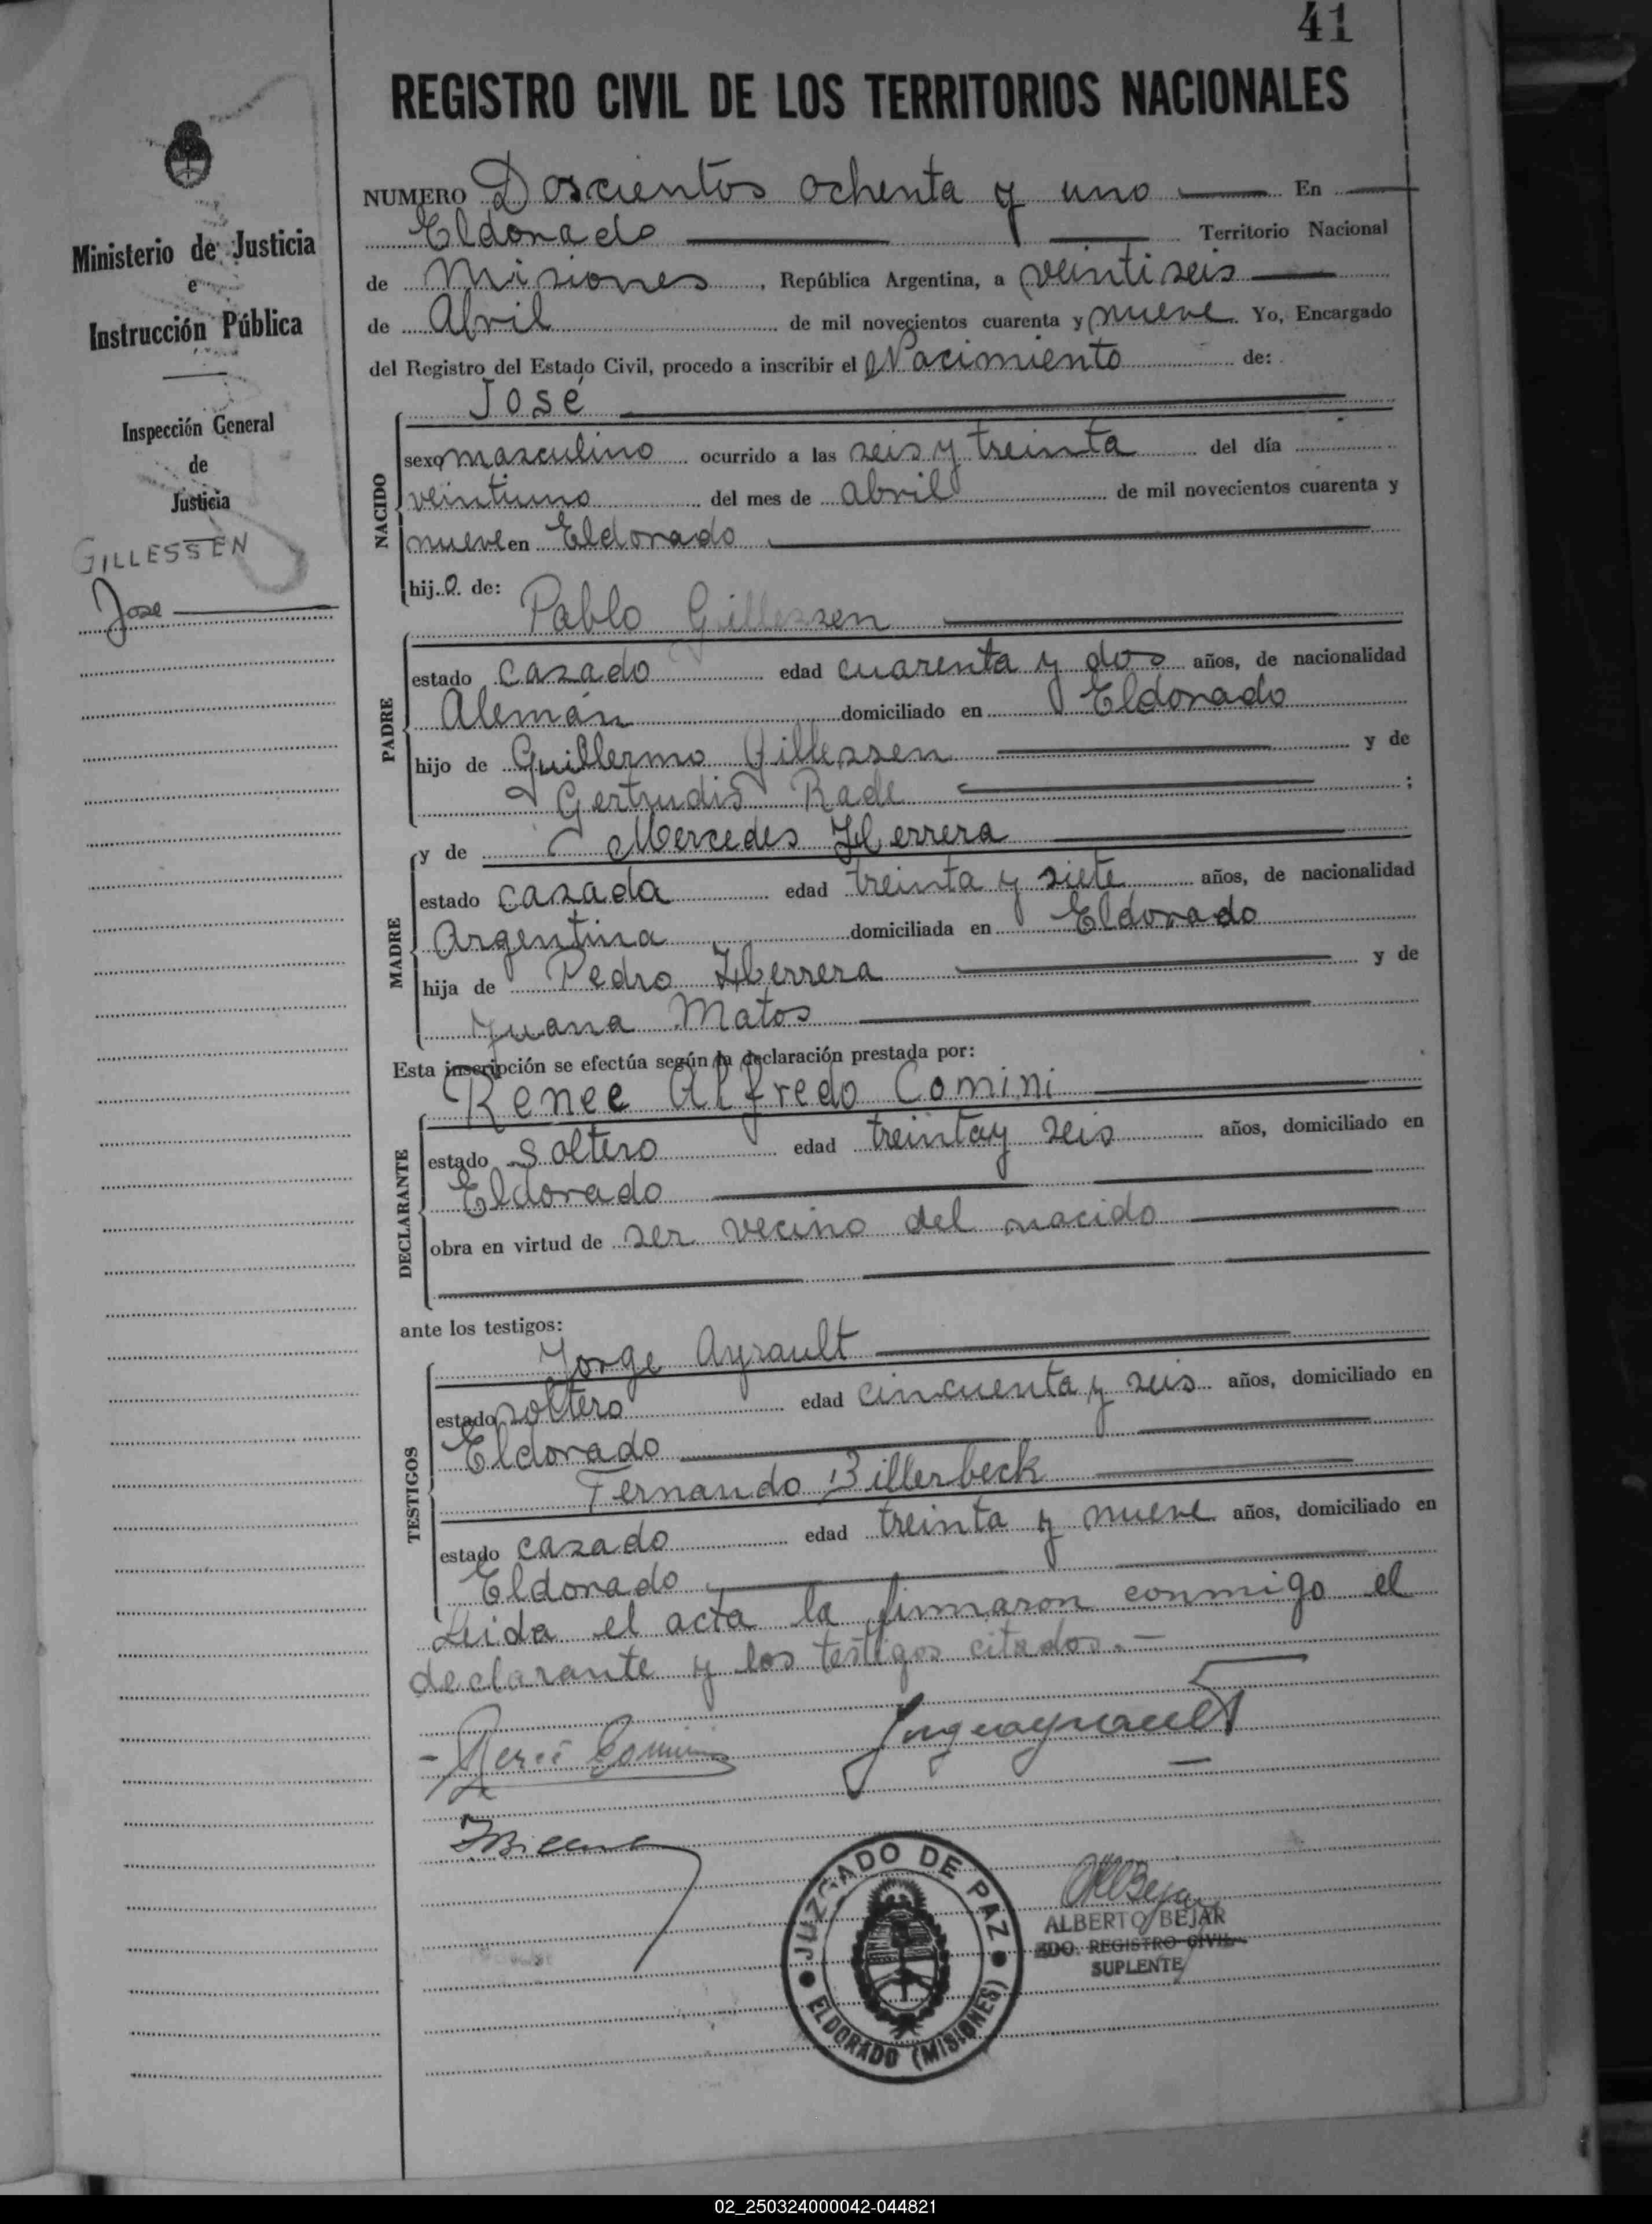 41
REGISTRO CIVIL DE LOS TERRITORIOS NACIONALES
Ministerio de Justicia
e
Instrucción Pública
Inspección General
de
Justicia
GILLESSEN
Jose
NUMERO Doscientos ochenta y uno En
Eldorado Territorio Nacional
de Misiones, República Argentina, a veintiseis
de Abril de mil novecientos cuarenta y nueve. Yo, Encargado
del Registro del Estado Civil, procedo a inscribir el Nacimiento de:
José
NACIDO
sexo masculino ocurrido a las seis y treinta del día
veintiuno del mes de abril de mil novecientos cuarenta y
nueve en Eldorado
hijo de:
Pablo Gillessen
PADRE
estado casado edad cuarenta y dos años, de nacionalidad
Alemán domiciliado en Eldorado
hijo de Guillermo Gillessen y de
Gertrudis Rade ;
MADRE
y de Mercedes Herrera
estado casada edad treinta y siete años, de nacionalidad
Argentina domiciliada en Eldorado
hija de Pedro Herrera y de
Juana Matos
Esta inscripción se efectúa según la declaración prestada por:
Renee Alfredo Comini
DECLARANTE
estado soltero edad treinta y seis años, domiciliado en
Eldorado
obra en virtud de ser vecino del nacido
ante los testigos:
Jorge Ayrault
TESTIGOS
estado soltero edad cincuenta y seis años, domiciliado en
Eldorado
Fernando Billerbeck
estado casado edad treinta y nueve años, domiciliado en
Eldorado
Leida el acta la firmaron conmigo el
declarante y los testigos citados.-
JUZGADO DE PAZ
ELDORADO (MISIONES)
ALBERTO BEJAR
EDO. REGISTRO CIVIL
SUPLENTE
02_250324000042-044821